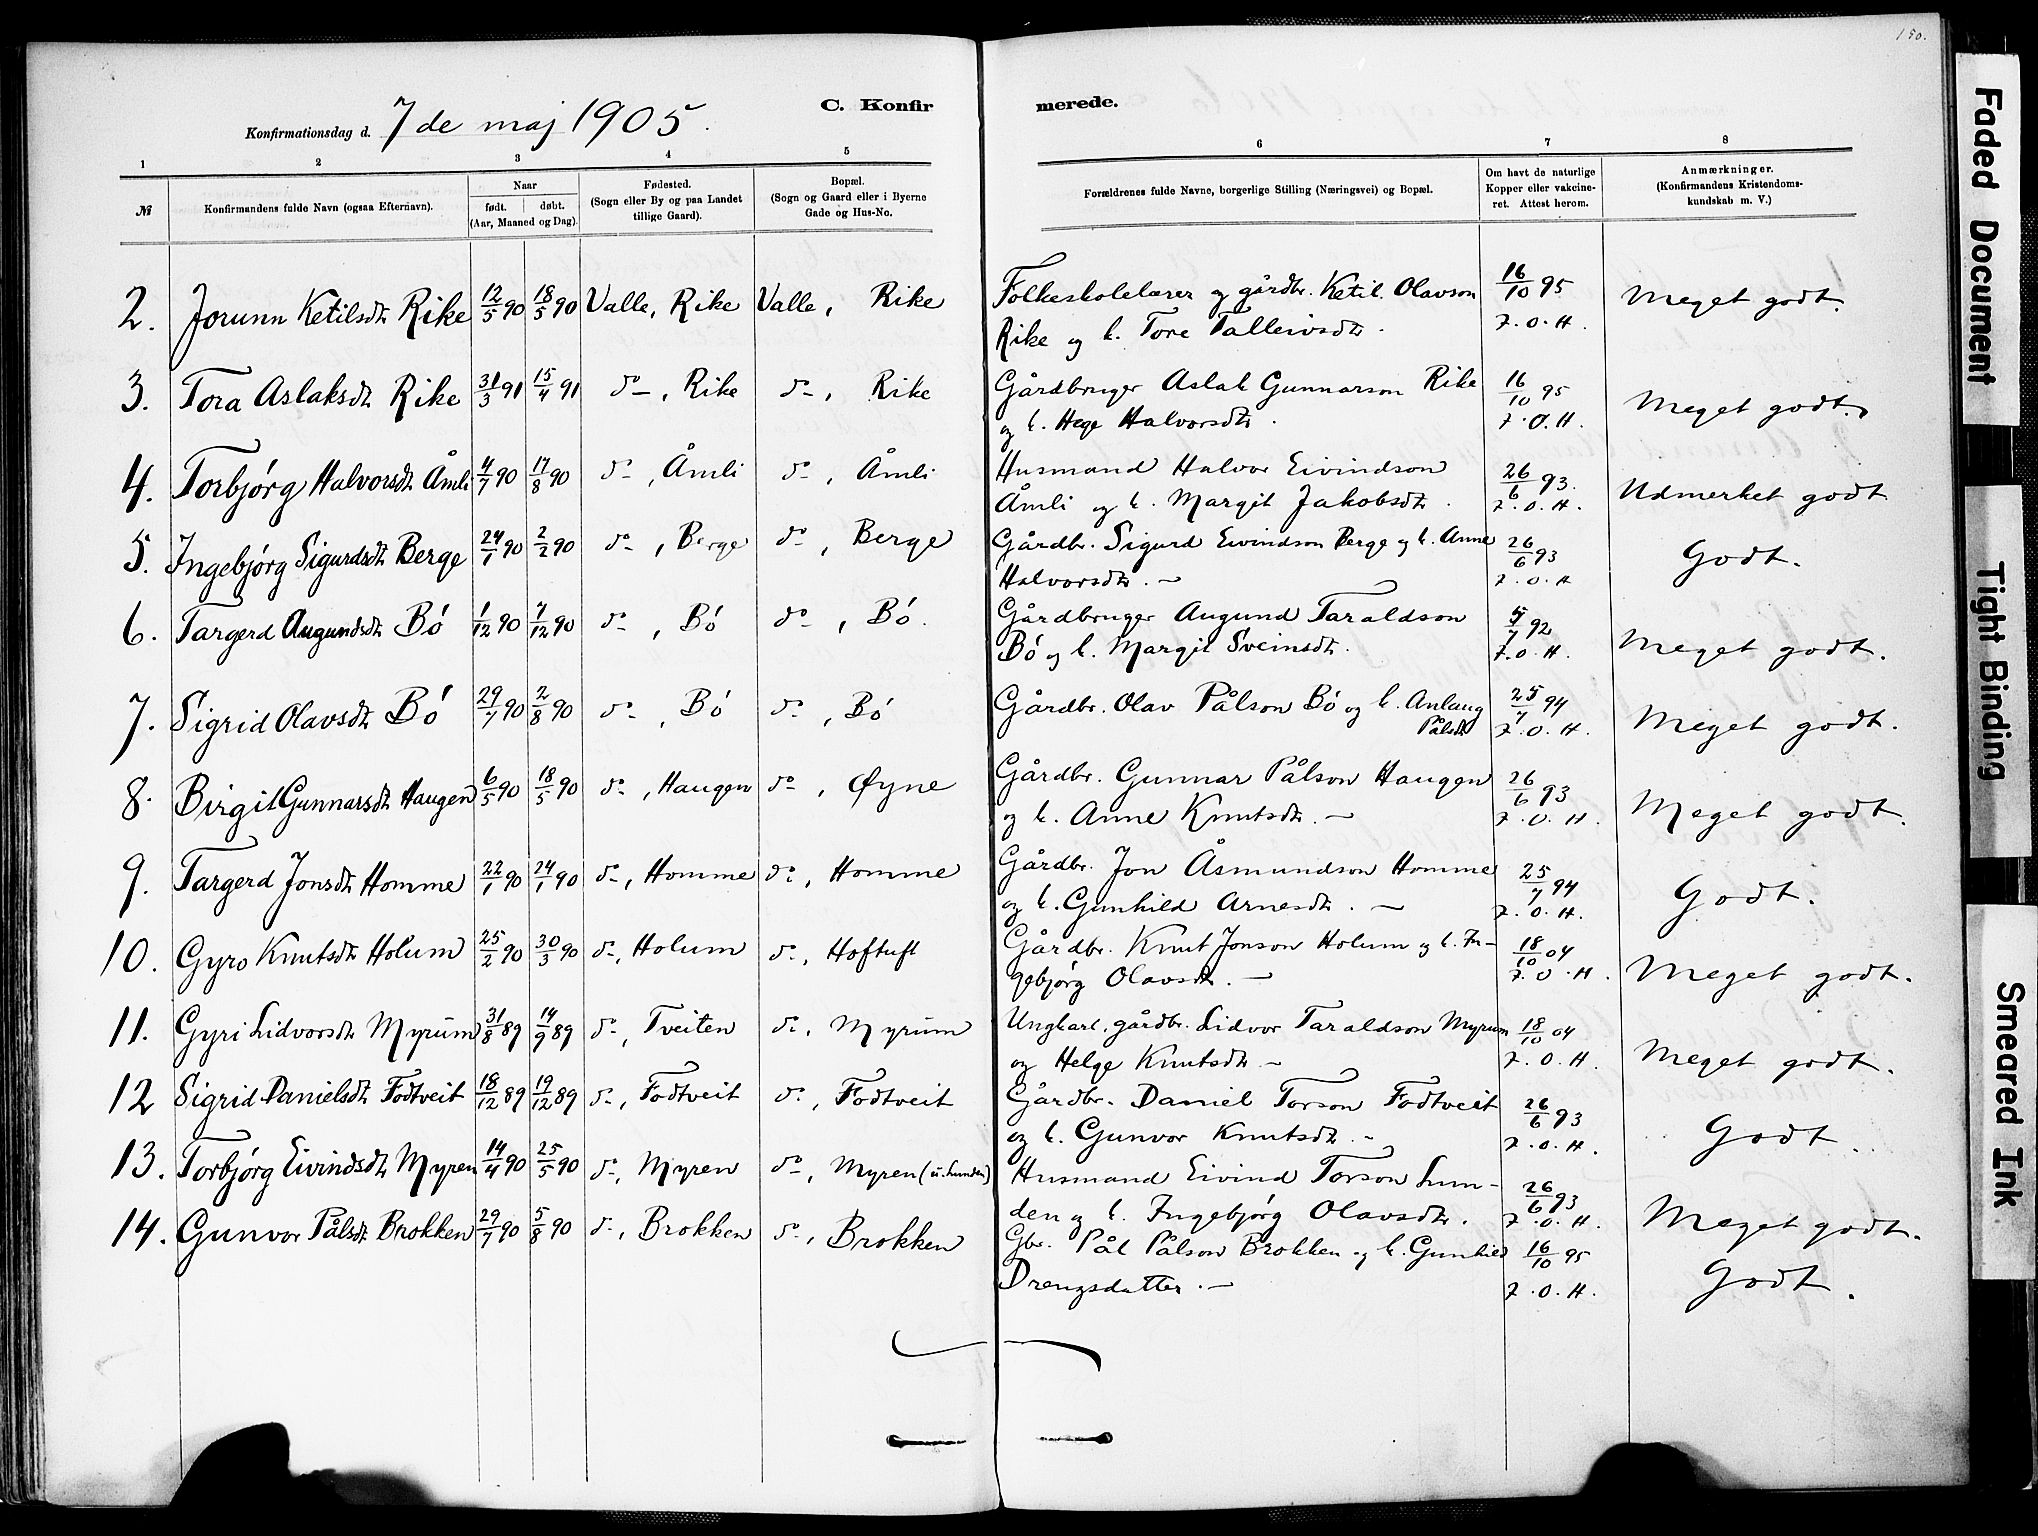 150.
C. Konfirmerede.
Konfirmationsdag d. 7de maj 1905.
1 2 3 4 5 6 7 8
№ Konfirmandens fulde Navn (ogsaa Efternavn). Naar født. døbt. (Aar, Maaned og Dag). Fødested. (Sogn eller By og paa Landet tillige Gaard). Bopæl. (Sogn og Gaard eller i Byerne Gade og Hus-No. Forældrenes fulde Navne, borgerlige Stilling (Næringsvei) og Bopæl. Om havt de naturlige Kopper eller vakcineret. Attest herom. Anmærkninger. (Konfirmandens Kristendomskundskab m. V.)
2. Jorunn Ketilsdtr Rike 12/5 90 18/5 90 Valle, Rike Valle, Rike Folkeskolelærer og gårdbr. Ketil Olavson 16/10 95 Meget godt.
Rike og h. Tore Talleivsdtr. J.O.H.
3. Tora Aslaksdtr Rike 31/3 91 15/4 91 do, Rike do, Rike Gårdbruger Aslak Gunnarson Rike 16/10 95 Meget godt.
og h. Hege Halvorsdtr. J.O.H.
4. Torbjørg Halvorsdtr Åmli 4/7 90 17/8 90 do, Åmli do, Åmli Husmand Halvor Eivindson 26/6 93. Udmerket godt
Åmli og h. Margit Jakobsdtr. J.O.H.
5. Ingebjørg Sigurdsdtr Berge 24/1 90 2/2 90 do, Berge do, Berge Gårdbr. Sigurd Eivindson Berge og h. Anne 26/6 93 Godt.
Halvorsdtr. — J.O.H
6. Targerd Augundsdtr Bó 1/12 90 7/12 90 do, Bó do, Bó. Gårdbruger Augund Taraldson 5/7 92 Meget godt.
Bó og h. Margit Sveinsdtr. J.O.H.
7. Sigrid Olavsdtr Bó 29/7 90 2/8 90 do, Bó do, Bó Gårdbr. Olav Pålson Bó og h. Anlaug 25/7 94 Meget godt.
Pålsdtr J.O.H.
8. Birgit Gunnarsdtr Haugen 6/5 90 18/5 90 do, Haugen do, Øyne Gårdbr. Gunnar Pålson Haugen 26/6 93 Meget godt.
og h. Anne Knutsdtr. — J.O.H.
9. Targerd Jonsdtr Homme 22/1 90 24/1 90 do, Homme do, Homme Gårdbr. Jon Åsmundson Homme 25/7 94 Godt.
og h. Gunhild Arnesdtr. — J.O.H.
10. Gyro Knutsdtr Holum 25/2 90 30/3 90 do, Holum do, Hoftuft Gårdbr. Knut Jonson Holum og h. In- 18/10 04 Meget godt.
gebjørg Olavsdtr. — J.O.H.
11. Gyri Lidvorsdtr Myrum 31/8 89 14/9 89 do, Tveiten do, Myrum Ungkarl, gårdbr. Lidvor Taraldson Myrum 18/10 04 Meget godt.
og Helge Knutsdtr — J.O.H.
12 Sigrid Danielsdtr Fodtveit 18/12 89 19/12 89 do, Fodtveit do, Fodtveit Gårdbr. Daniel Torson Fodtveit 26/6 93 Godt.
og h. Gunvor Knutsdtr. — J.O.H.
13. Torbjørg Eivindsdtr Myren 14/4 90 25/5 90 do, Myren do, Myren (u. Lunden) Husmand Eivind Torson Lun- 26/6 93 Meget godt.
den og h. Ingebjørg Olavsdtr. J.O.H.
14. Gunvor Pålsdtr Brokken 29/7 90 5/8 90 do, Brokken do, Brokken Gbr. Pål Pålson Brokken og h. Gunhild 16/10 95 Godt.
Drengsdatter. — J.O.H.
Faded Document
Tight Binding
Smeared Ink